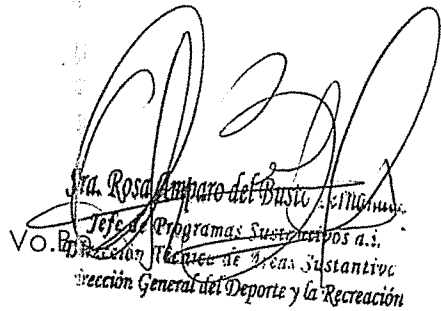 Sra. Rosa Amparo del Busto
Jefe de Programas Sustantivos a.i.
Vo.B
Dirección Técnica de Areas Sustantiva
Dirección General del Deporte y la Recreación